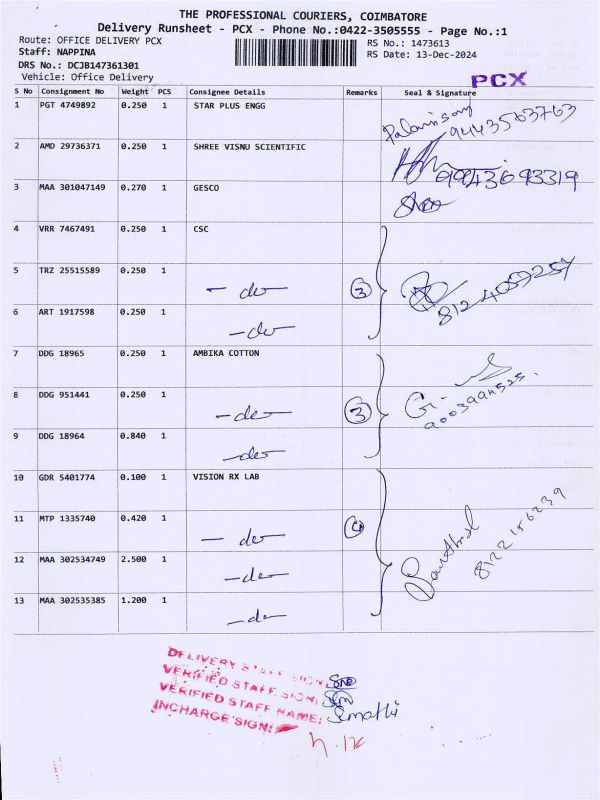 THE PROFESSIONAL COURIERS, COIMBATORE
Delivery Runsheet - PCX - Phone No.:0422-3505555 - Page No.:1
Route: OFFICE DELIVERY PCX
RS No.: 1473613
Staff: NAPPINA
RS Date: 13-Dec-2024
DRS No.: DCJB147361301
Vehicle: Office Delivery
PCX
S No Consignment No Weight PCS Consignee Details Remarks Seal & Signature
1 PGT 4749892 0.250 1 STAR PLUS ENGG
9443563763
2 AMD 29736371 0.250 1 SHREE VISNU SCIENTIFIC
9943693319
3 MAA 301047149 0.270 1 GESCO
4 VRR 7467491 0.250 1 CSC
5 TRZ 25515589 0.250 1 - do - 3
8124057257
6 ART 1917598 0.250 1 - do -
7 DDG 18965 0.250 1 AMBIKA COTTON
8 DDG 951441 0.250 1 - do - 3
9 DDG 18964 0.840 1 - do -
10 GDR 5401774 0.100 1 VISION RX LAB
11 MTP 1335740 0.420 1 - do - 4
12 MAA 302534749 2.500 1 - do -
13 MAA 302535385 1.200 1 - do -
DELIVERY STAFF SIGN:
VERIFIED STAFF SIGN:
VERIFIED STAFF NAME:
INCHARGE SIGN: